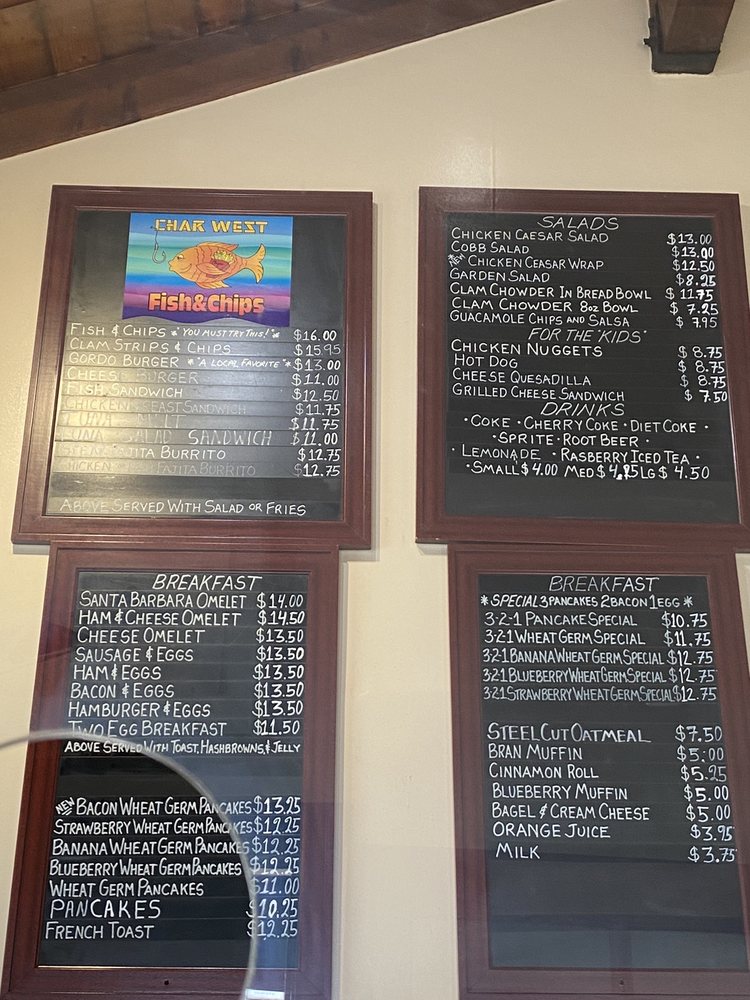 CHAR WEST
Fish&Chips
FISH & CHIPS * "YOU MUST TRY THIS!" * $16.00
CLAM STRIPS & CHIPS $15.95
GORDO BURGER * "A LOCAL FAVORITE" * $13.00
CHEESEBURGER $11.00
FISH SANDWICH $12.50
CHICKEN BREAST SANDWICH $11.75
TUNA MELT $11.75
TUNA SALAD SANDWICH $11.00
FAJITA BURRITO $12.75
CHICKEN FAJITA BURRITO $12.75
ABOVE SERVED WITH SALAD OR FRIES
SALADS
CHICKEN CAESAR SALAD $13.00
COBB SALAD $13.00
"NEW" CHICKEN CEASAR WRAP $12.50
GARDEN SALAD $8.25
CLAM CHOWDER IN BREAD BOWL $11.75
CLAM CHOWDER 8OZ BOWL $7.25
GUACAMOLE CHIPS AND SALSA $7.95
FOR THE "KIDS"
CHICKEN NUGGETS $8.75
HOT DOG $8.75
CHEESE QUESADILLA $8.75
GRILLED CHEESE SANDWICH $7.50
DRINKS
• COKE • CHERRY COKE • DIET COKE •
• SPRITE • ROOT BEER •
• LEMONADE • RASBERRY ICED TEA •
• SMALL $4.00 MED $4.25 LG $4.50
BREAKFAST
SANTA BARBARA OMELET $14.00
HAM & CHEESE OMELET $14.50
CHEESE OMELET $13.50
SAUSAGE & EGGS $13.50
HAM & EGGS $13.50
BACON & EGGS $13.50
HAMBURGER & EGGS $13.50
TWO EGG BREAKFAST $11.50
ABOVE SERVED WITH TOAST, HASHBROWNS, & JELLY
NEW BACON WHEAT GERM PANCAKES $13.25
STRAWBERRY WHEAT GERM PANCAKES $12.25
BANANA WHEAT GERM PANCAKES $12.25
BLUEBERRY WHEAT GERM PANCAKES $12.25
WHEAT GERM PANCAKES $11.00
PANCAKES $10.25
FRENCH TOAST $12.25
BREAKFAST
* SPECIAL 3 PANCAKES 2 BACON 1 EGG *
3-2-1 PANCAKE SPECIAL $10.75
3-2-1 WHEAT GERM SPECIAL $11.75
3-2-1 BANANA WHEAT GERM SPECIAL $12.75
3-2-1 BLUEBERRY WHEAT GERM SPECIAL $12.75
3-2-1 STRAWBERRY WHEAT GERM SPECIAL $12.75
STEEL CUT OATMEAL $7.50
BRAN MUFFIN $5.00
CINNAMON ROLL $5.25
BLUEBERRY MUFFIN $5.00
BAGEL & CREAM CHEESE $5.00
ORANGE JUICE $3.95
MILK $3.75